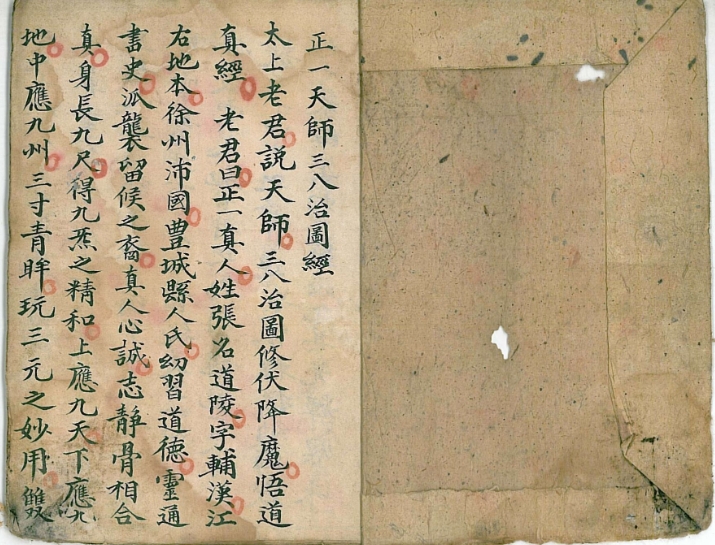 正一天師三八治圖經
太上老君説天師三八治圖修伏降魔悟道
真經　老君曰正一真人姓張名道陵字輔漢江
右地本徐州沛國豊城縣人氏幼習道德靈通
書史派襲留候之裔真人心誠志靜骨相合
真身長九尺得九炁之精和上應九天下應九
地中應九州三寸青眸玩三元之妙用雙